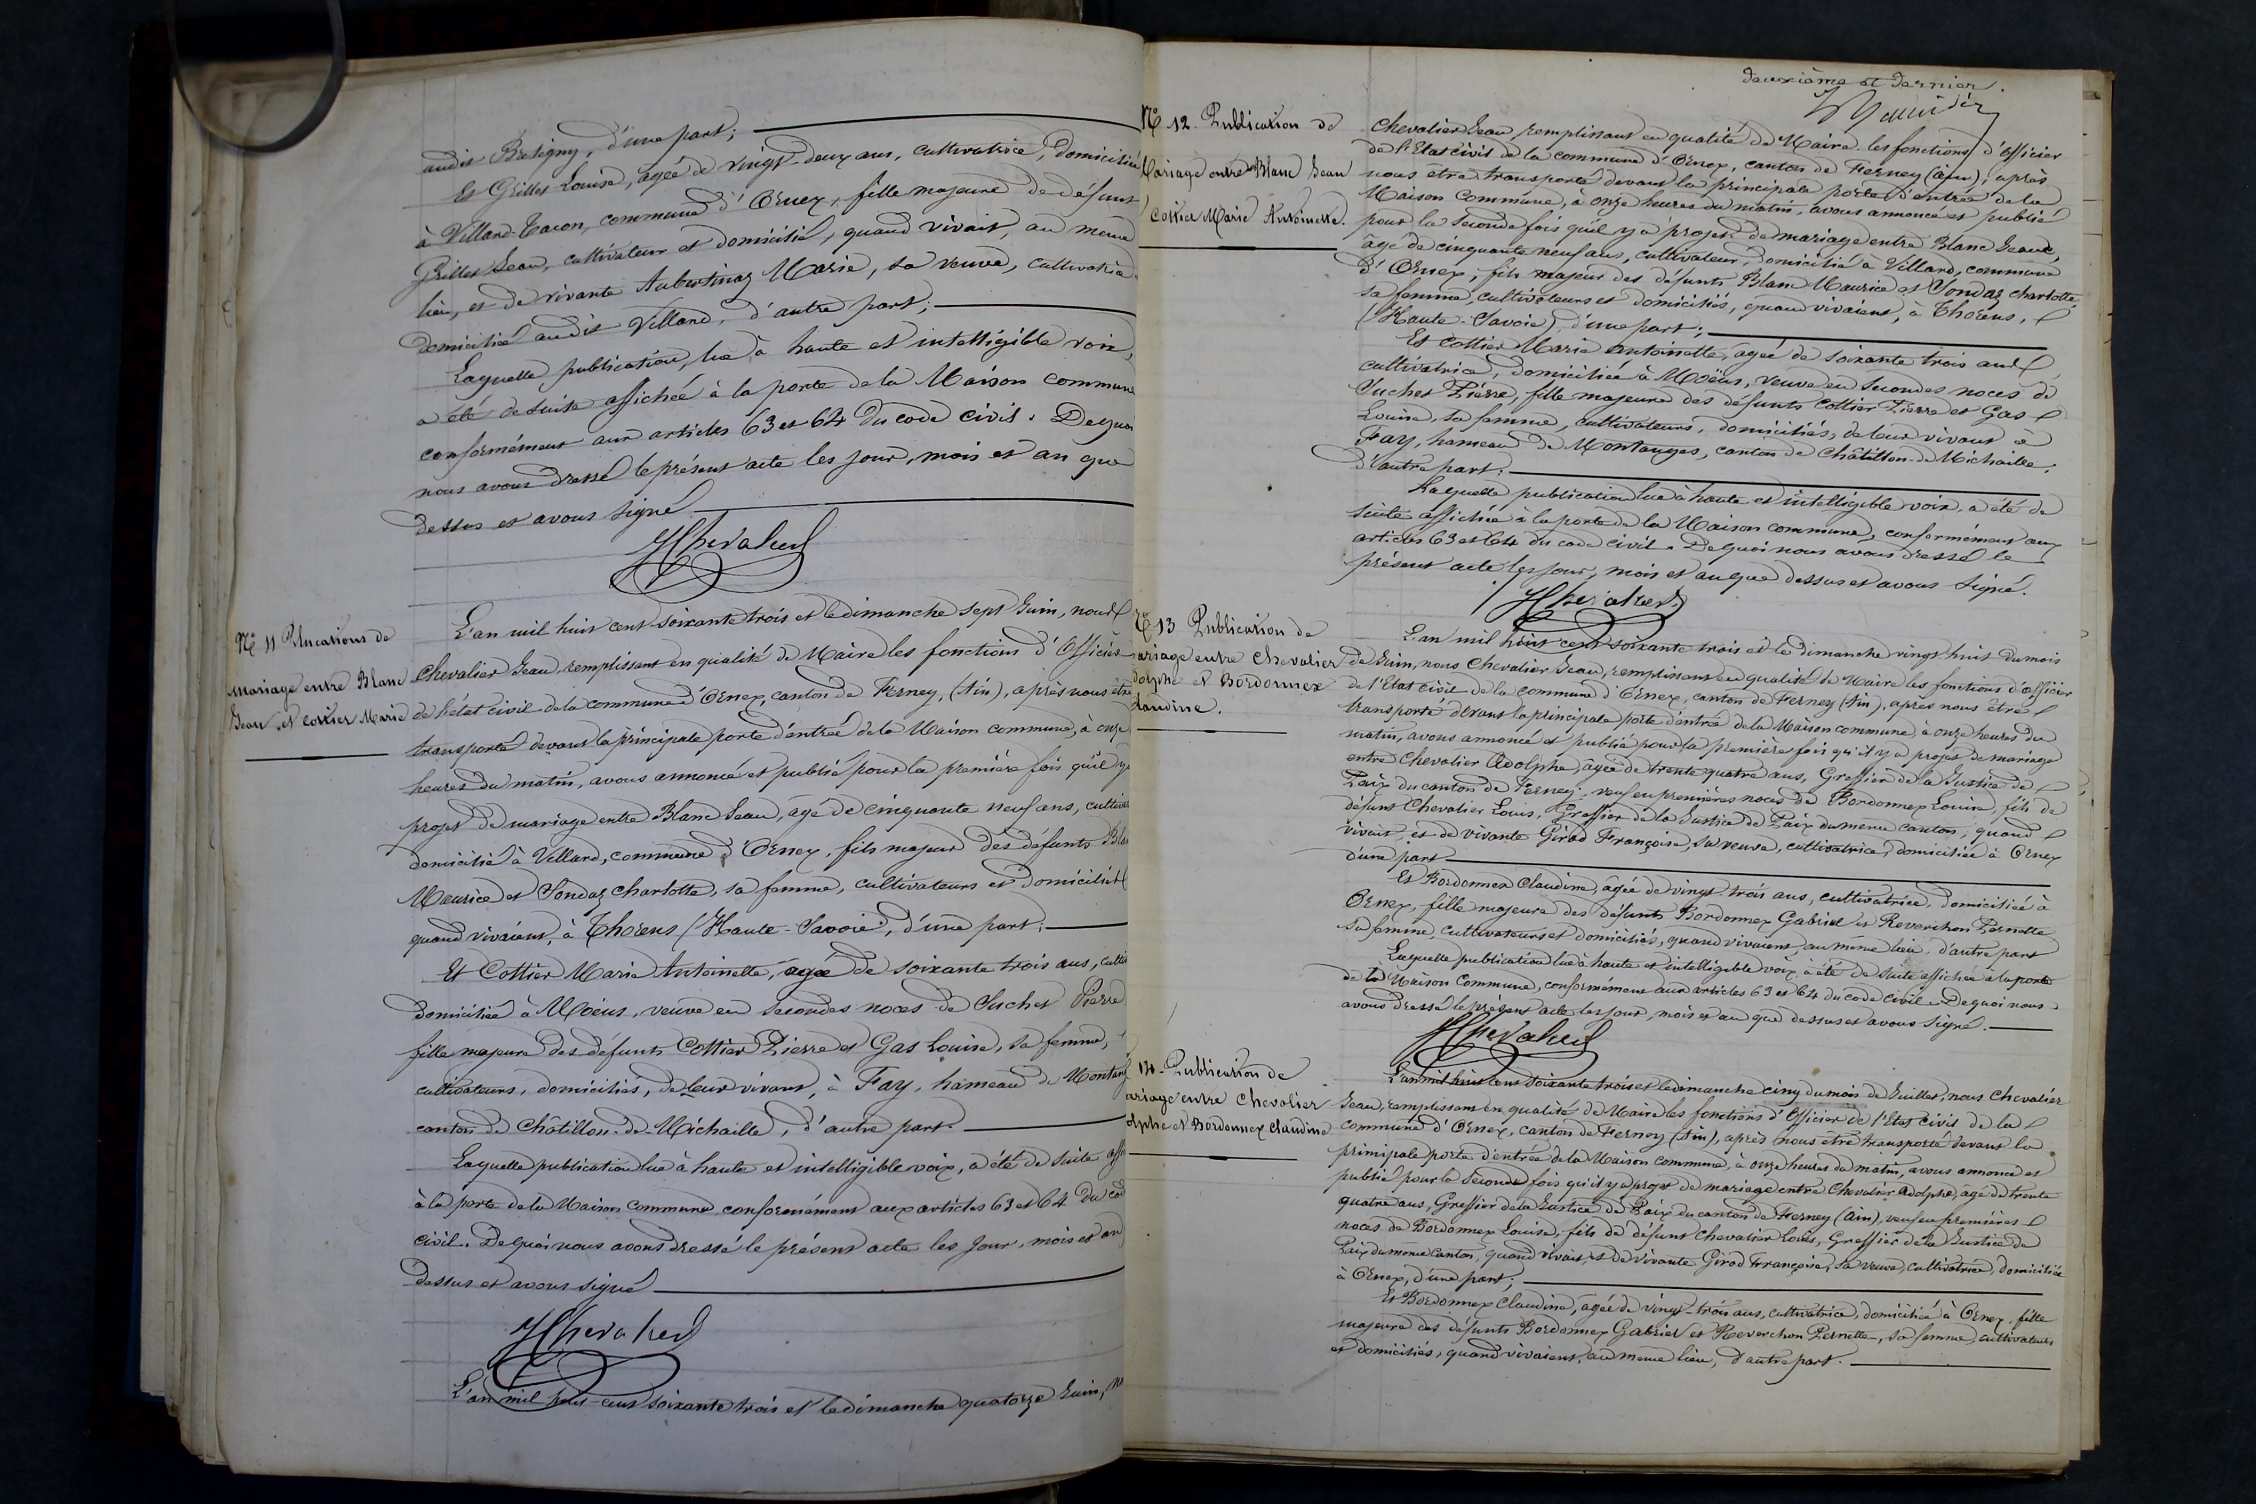 audit Brétigny, d'une part;
Et Grillet Louise, agée de vingt-deux ans, cultivatrice, domiciliée
à Villard-Tacon, commune d'Ornex, fille majeure de défunt
Grillet Jean, cultivateur et domicilié, quand vivait, au même
lieu, et de vivante Aubertinaz Marie, sa veuve, cultivatrice
domicilié audit Villard, d'autre part;
Laquelle publication, lue à haute et intelligible voix,
a été de suite affichée à la porte de la Maison commune
conformément aux articles 63 et 64 du code civil. De quoi
nous avons dressé le présent acte les jour, mois et an que
dessus et avons signé
JChevalier
N° 11 Plucations de
mariage entre Blanc
Jean et Cottier Marie
L'an mil huit cent soixante trois et le dimanche sept Juin, nous
Chevalier Jean, remplissant en qualité de Maire les fonctions d'Officier
de l'état civil de la commune d'Ornex, canton de Ferney, (Ain), après nous être
transporté devant la principale porte d'entrée de la Maison commune, à onze
heures du matin, avons annoncé et publié pour la première fois qu'il y a
projet de mariage entre Blanc Jean, âgé de cinquante neuf ans, cultiva
domicilié à Villard, commune d'Ornex, fils majeur des défunts Bla
Maurice et Jondaz Charlotte, sa femme, cultivateurs et domiciliés
quand vivaient, à Thorens (Haute-Savoie), d'une part;
Et Cottier Marie Antoinette, agée de soixante trois ans, culti
domiciliée à Moëns, veuve en secondes noces de Suchet Pierre
fille majeure des défunts Cottier Pierre et Gas Louise, sa femme,
cultivateurs, domiciliés, de leur vivant, à Fay, hameau de Montang
canton de Châtillon-de-Michaille, d'autre part.
Laquelle publication lue à haute et intelligible voix, a été de suite affi
à la porte de la Maison commune conformément aux articles 63 et 64 du cod
civil. De quoi nous avons dressé le présent acte les jour, mois et an
dessus et avons signé
JChevalier
L'an mil huit cent soixante trois et le dimanche quatorze Juin, no
deuxième et dernier.
N° 12. Publication de
Mariage entre Blanc Jean
Cottier Marie Antoinette.
Chevalier Jean, remplissant en qualité de Maire les fonctions d'officier
de l'Etat civil de la commune d'Ornex, canton de Ferney (Ain), après
nous être transporté devant la principale porte d'entrée de la
Maison Commune, à onze heures du matin, avons annoncé et publié
pour la seconde fois qu'il y a projet de mariage entre Blanc Jean,
âgé de cinquante neuf ans, cultivateur, domicilié à Villard, commune
d'Ornex, fils majeur des défunts Blanc Maurice et Jondaz Charlotte
sa femme, cultivateurs et domiciliés, quand vivaient, à Thorens,
(Haute-Savoie), d'une part;
Et Cottier Marie Antoinette, agée de soixante trois ans
cultivatrice, domiciliée à Moëns, veuve en secondes noces de
Suchet Pierre, fille majeure des défunts Cottier Pierre et Gas
Louise, sa femme, cultivateurs, domiciliés, de leur vivant à
Fay, hameau de Montanges, canton de Châtillon-de-Michaille,
d'autre part;
Laquelle publication lue à haute et intelligible voix, a été de
suite affichée à la porte de la Maison commune, conformément aux
articles 63 et 64 du code civil. De quoi nous avons dressé le
présent acte les jour, mois et an que dessus et avons signé.
JChevalier
N° 13 Publication de
ariage entre Chevalier
dolphe et Bordonnex
laudine.
L'an mil huit cent soixante trois et le dimanche vingt huit du mois
de Juin, nous Chevalier Jean, remplissant en qualité de Maire les fonctions d'officier
de l'Etat civil de la commune d'Ornex, canton de Ferney (Ain), après nous être
transporté devant la principale porte d'entrée de la Maison commune à onze heures du
matin, avons annoncé et publié pour la première fois qu'il y a projet de mariage
entre Chevalier Adolphe, âgé de trente quatre ans, Greffier de la Justice de
Paix du canton de Ferney, veuf en premières noces de Bordonnex Louise, fils de
défunt Chevalier Louis, Greffier de la Justice de Paix du même canton, quand
vivait, et de vivante Girod Françoise, sa veuve, cultivatrice, domiciliée à Ornex
d'une part
Et Bordonnex Claudine, âgée de vingt trois ans, cultivatrice, domiciliée à
Ornex, fille majeure des défunts Bordonnex Gabriel et Reverchon Pernette
sa femme, cultivateurs et domiciliés, quand vivaient, au même lieu, d'autre part
Laquelle publication lue à haute et intelligible voix, a été de suite affichée à la porte
de la Maison Commune, conformément aux articles 63 et 64 du code civil. De quoi nous
avons dressé le présent acte les jour, mois et an que dessus et avons signé.
JChevalier
14. Publication de
ariage entre Chevalier
olphe et Bordonnex Claudine
L'an mil huit cent soixante trois et le dimanche cinq du mois de Juillet, nous Chevalier
Jean, remplissant en qualité de Maire les fonctions d'Officier de l'Etat civil de la
commune d'Ornex, canton de Ferney (Ain), après nous être transporté devant la
principale porte d'entrée de la Maison commune, à onze heures du matin, avons annoncé et
publié pour la seconde fois qu'il y a projet de mariage entre Chevalier Adolphe, âgé de trente
quatre ans, Greffier de la Justice de Paix du canton de Ferney (Ain), veuf en premières
noces de Bordonnex Louise, fils de défunt Chevalier Louis, Greffier de la Justice de
Paix du même canton, quand vivait, et de vivante Girod Françoise, sa veuve, cultivatrice, domiciliée
à Ornex, d'une part;
Et Bordonnex Claudine, agée de vingt-trois ans, cultivatrice, domiciliée à Ornex, fille
majeure des défunts Bordonnex Gabriel et Reverchon Pernette, sa femme, cultivateurs
et domiciliés, quand vivaient, au même lieu, d'autre part.